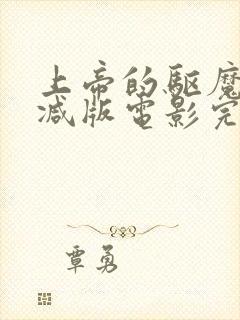 上帝的驱魔
减版電影完
覃勇